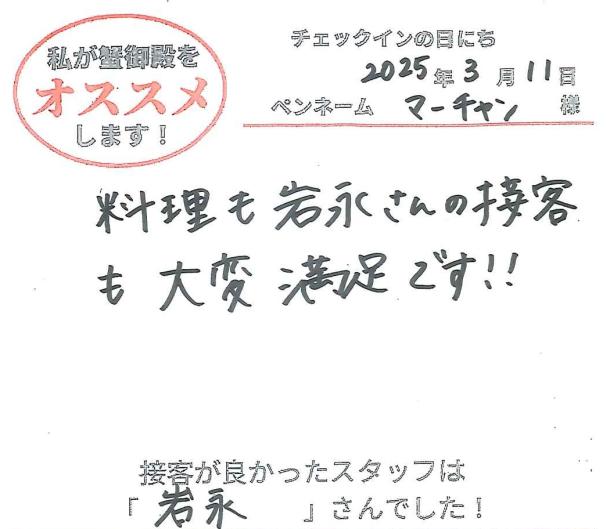 私が蟹御殿を
オススメ
します！
チェックインの日にち
2025年3月11日
ペンネーム マーチャン 様
料理も岩永さんの接客
も大変満足です!!
接客が良かったスタッフは
「岩永」さんでした！